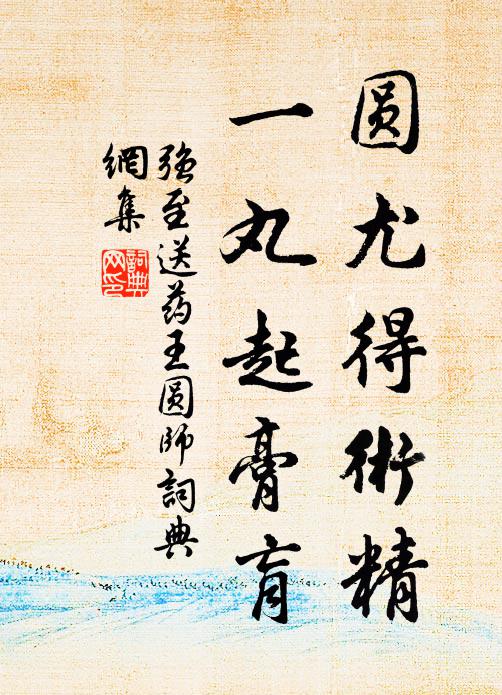 圆尤得術精
一丸起膏肓
强至送药王圆师詞典
網集
詞典
网印